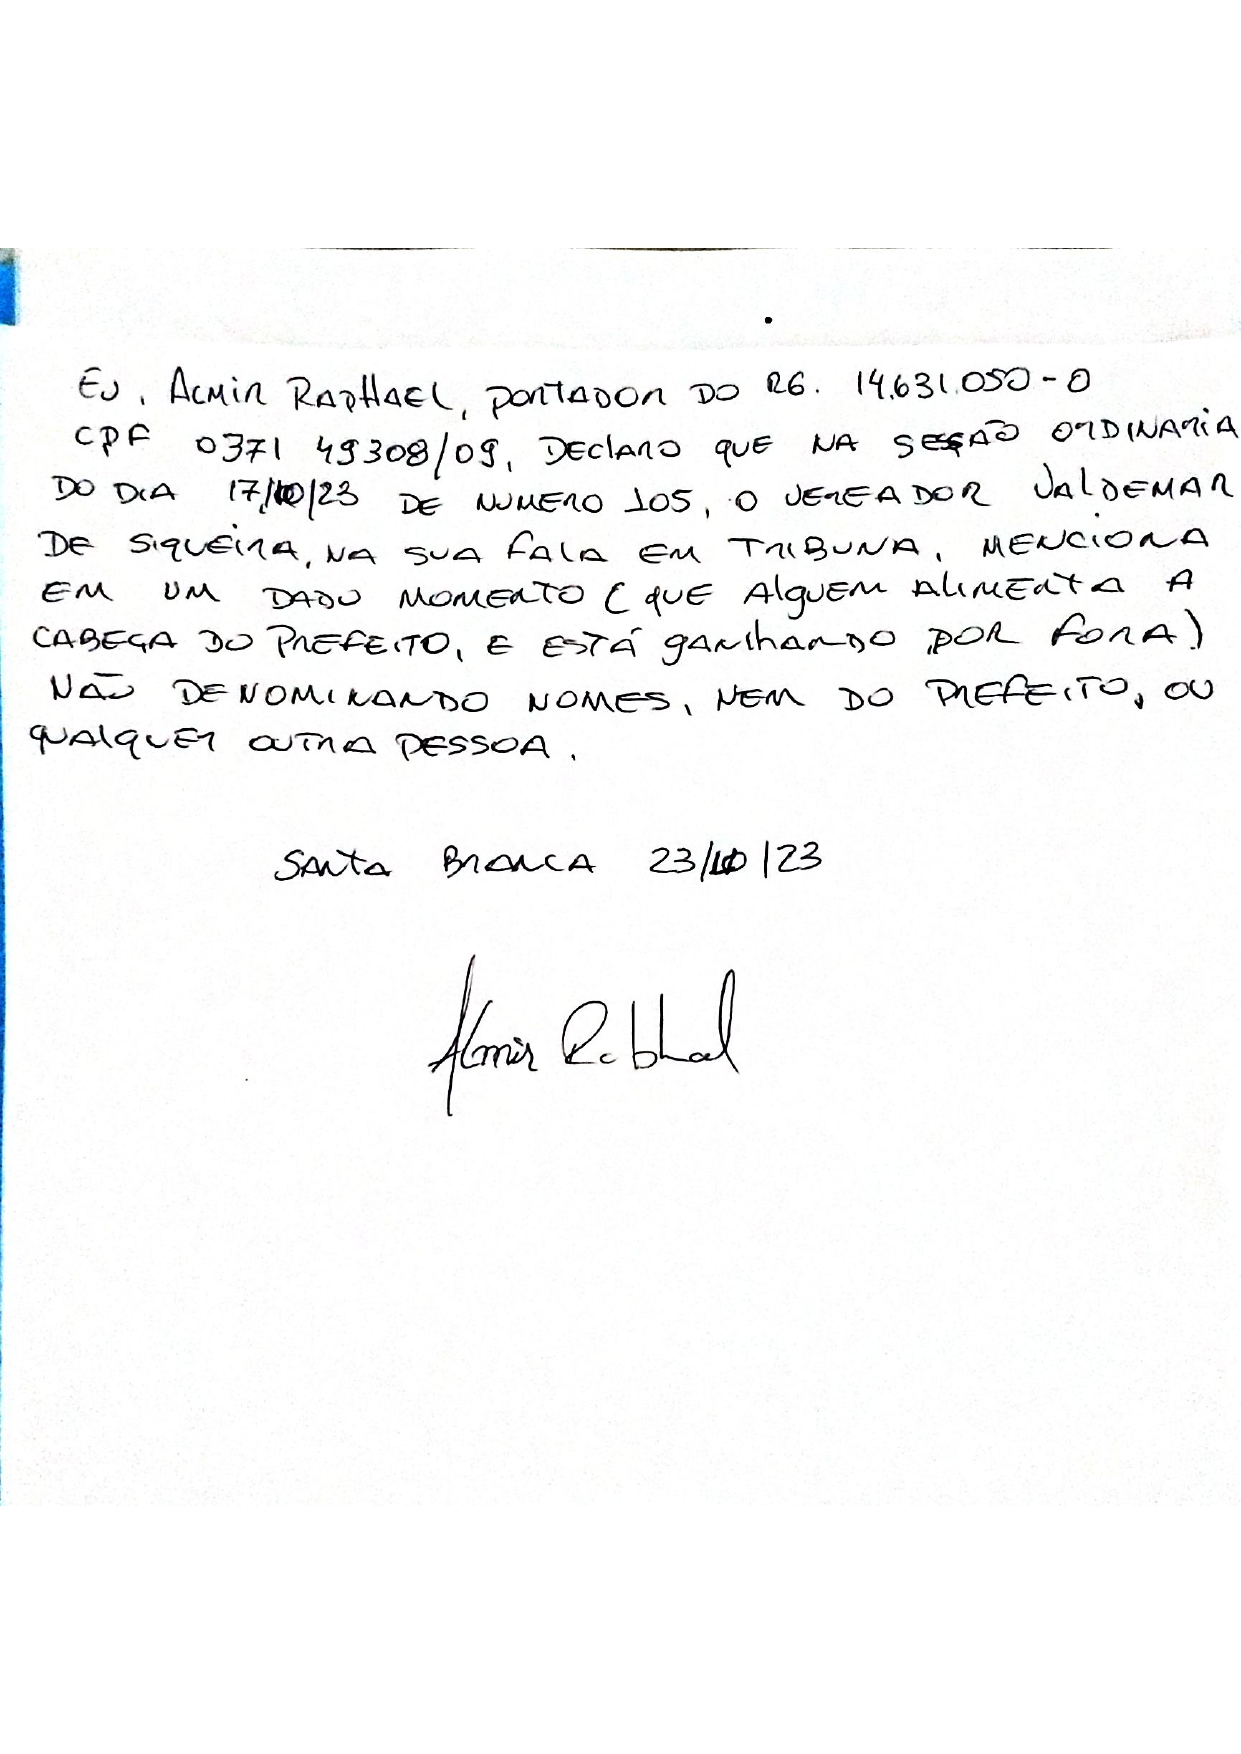 EU, ALMIR RAPHAEL, PORTADOR DO RG. 14.631.050-0
CPF 0371 49308/09, DECLARO QUE NA SESSÃO ORDINARIA
DO DIA 17/10/23 DE NUMERO 105, O VEREADOR VALDEMAR
DE SIQUEIRA, NA SUA FALA EM TRIBUNA, MENCIONA
EM UM DADO MOMENTO (QUE ALGUEM ALIMENTA A
CABEÇA DO PREFEITO, E ESTÁ GANHANDO POR FORA)
NÃO DENOMINANDO NOMES, NEM DO PREFEITO, OU
QUALQUER OUTRA PESSOA.
SANTA BRANCA 23/10/23
Almir Raphael